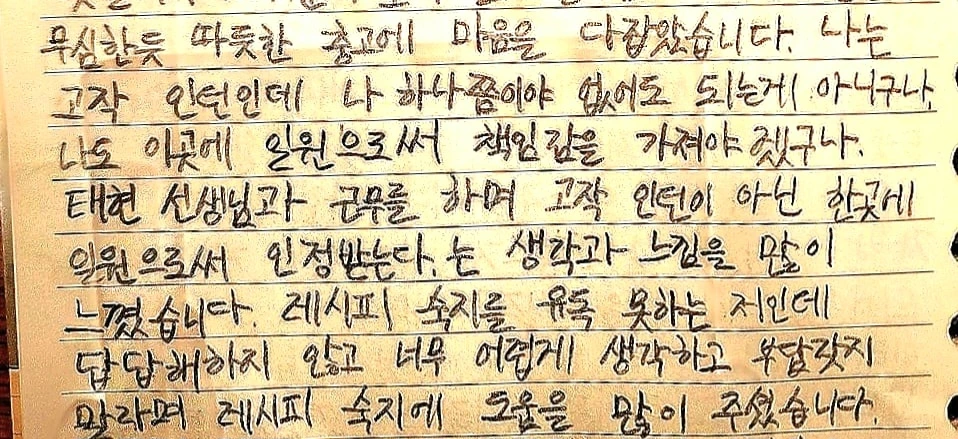 무심한듯 따듯한 충고에 마음을 다잡았습니다. 나는
고작 인턴인데 나 하나쯤이야 없어도 되는게 아니구나.
나도 이곳에 일원으로써 책임감을 가져야 겠구나.
태현 선생님과 근무를 하며 고작 인턴이 아닌 한곳에
일원으로써 인정받는다.는 생각과 느낌을 많이
느꼈습니다. 레시피 숙지를 유독 못하는 저인데
답답해하지 않고 너무 어렵게 생각하고 부담갖지
말라며 레시피 숙지에 도움을 많이 주셨습니다.